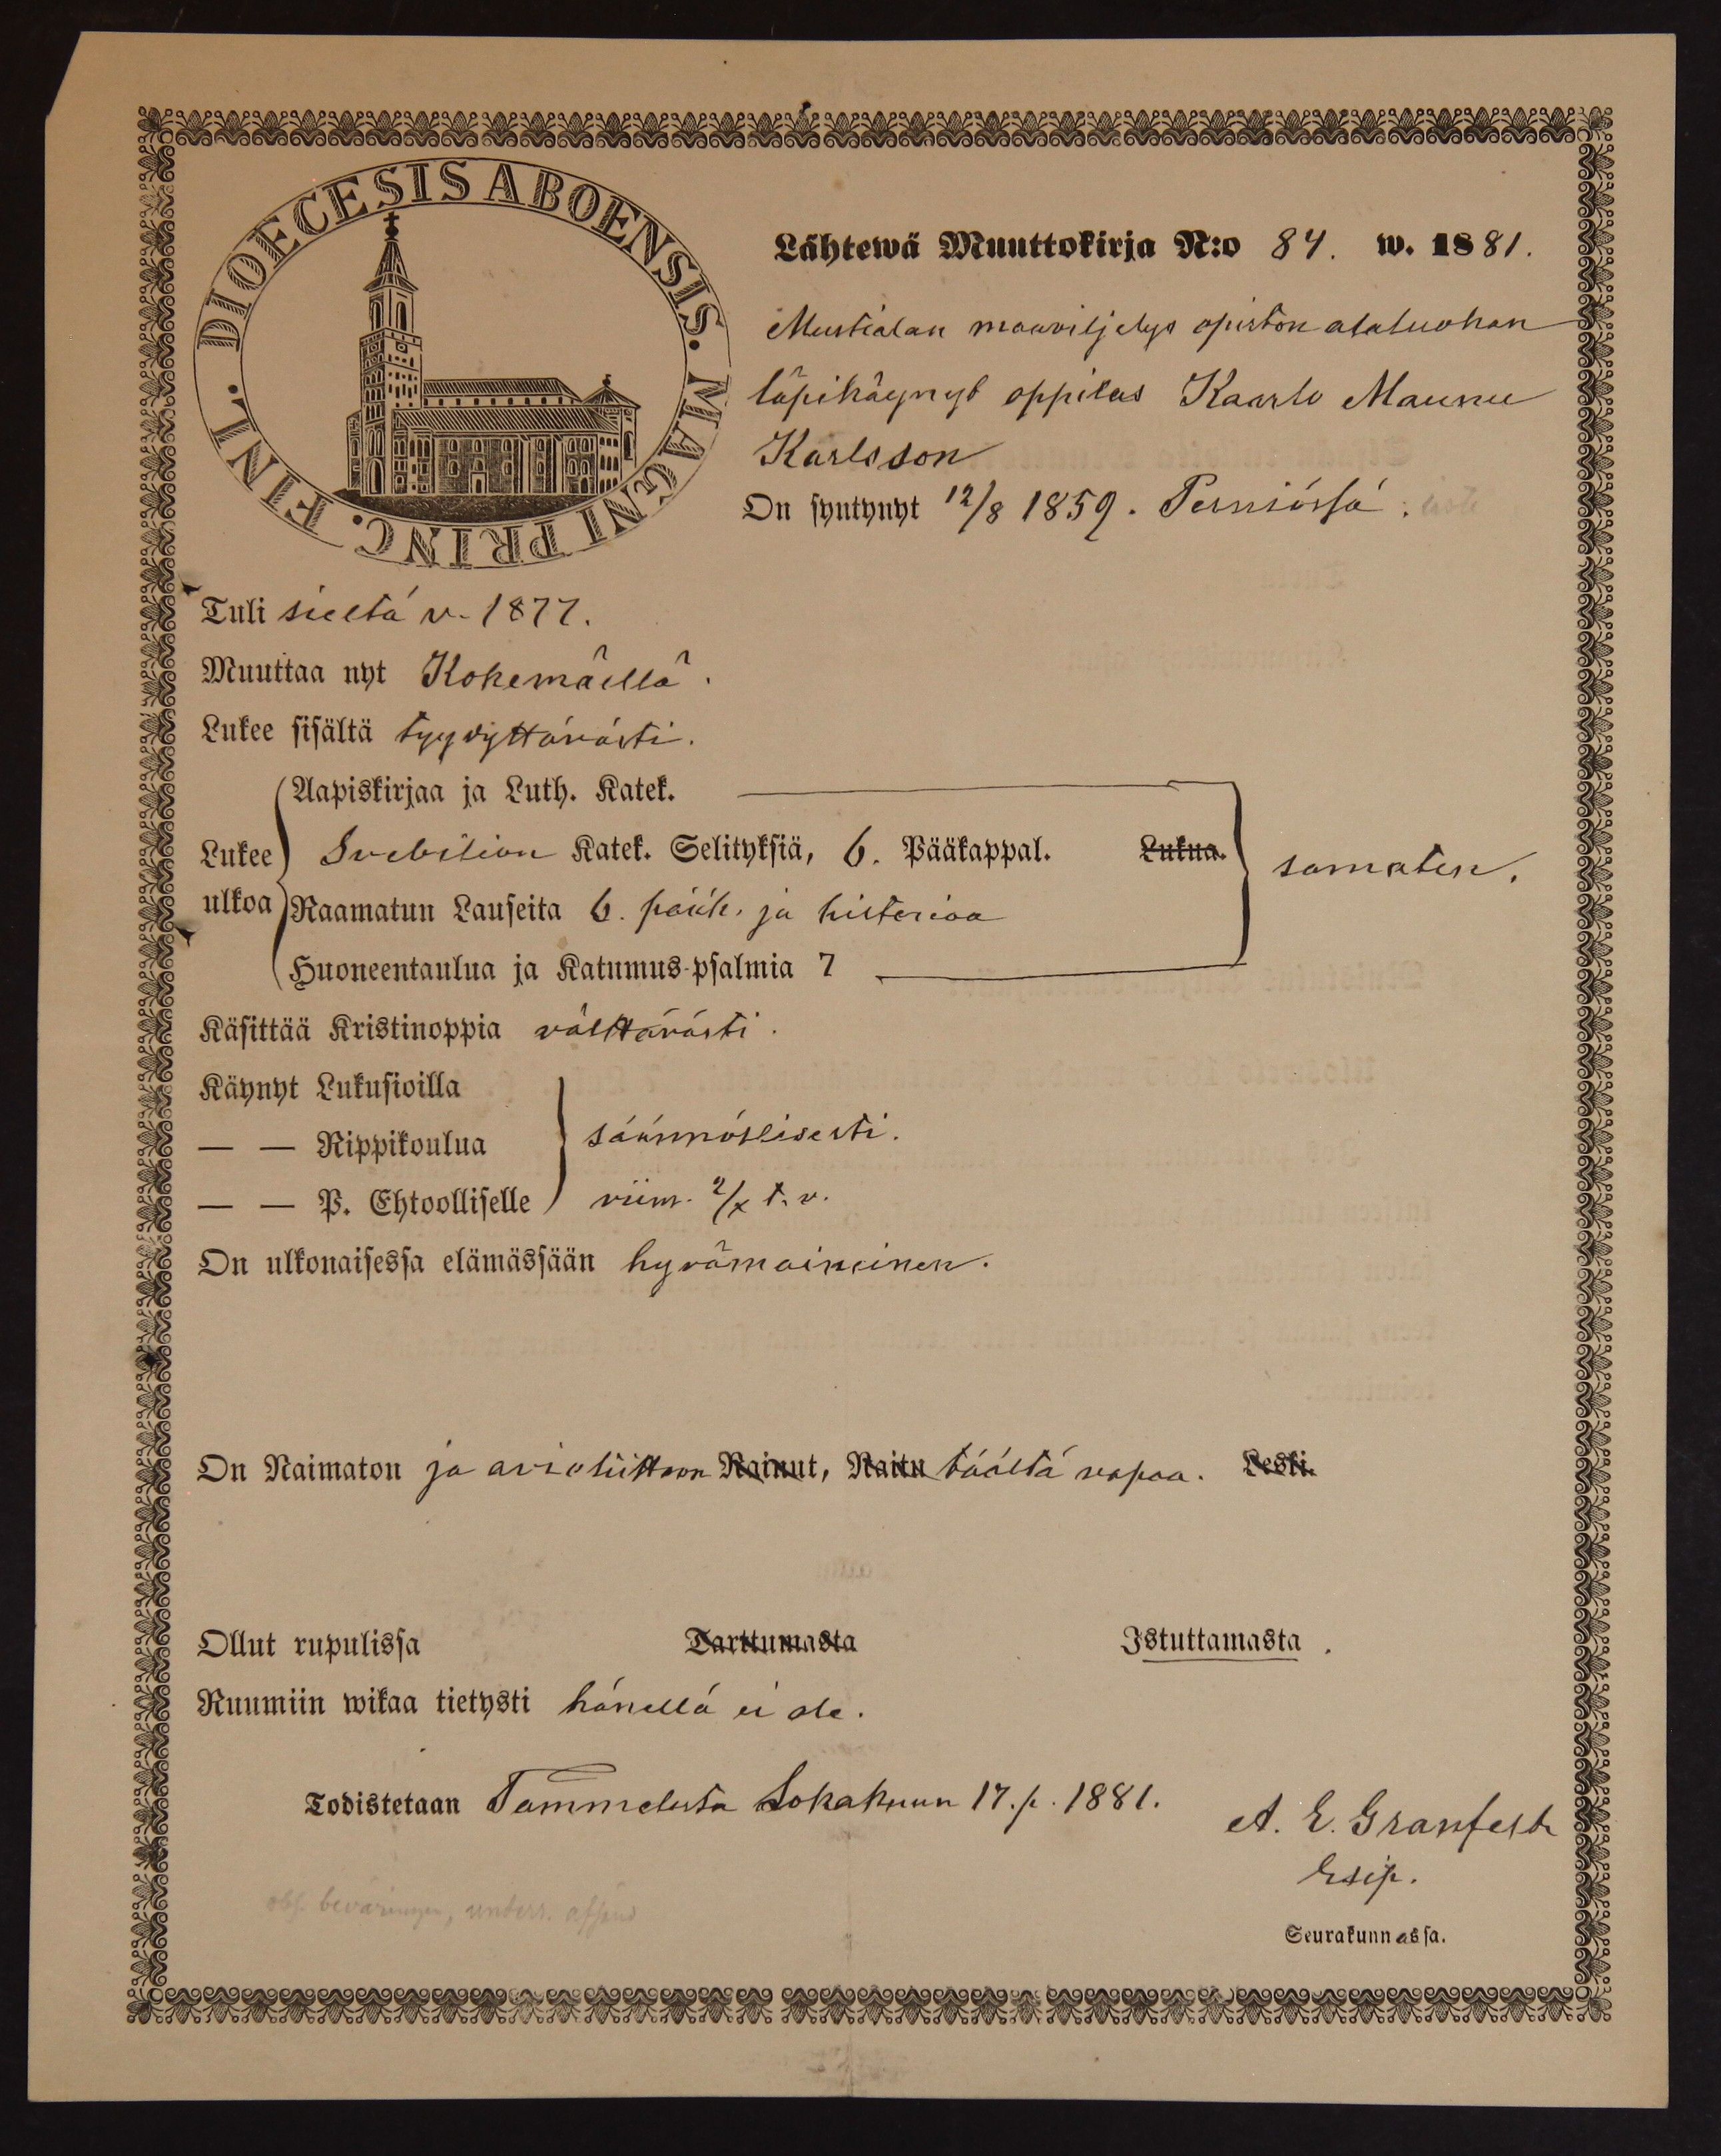 DIOECESIS ABOENSIS. MAGNI PRINC. FINL.
Lähtewä Muuttokirja N:o 84. w. 1881.
Mustialan maaviljelys opiston alaluokan
läpikäynyt oppilas Kaarlo Maunu
Karlsson
On syntynyt 12/8 1859. Perniössä.
Tuli sieltä v. 1877.
Muuttaa nyt Kokemäellä.
Lukee sisältä tyydyttävästi.
Aapiskirjaa ja Luth. Katek.
Lukee Svebilion Katek. Selityksiä, 6. Pääkappal. Lukua. samaten.
ulkoa Raamatun Lauseita 6. pääk. ja historiaa
Huoneentaulua ja Katumus-psalmia 7
Käsittää Kristinoppia välttävästi.
Käynyt Lukusioilla
— — Rippikoulua säännöllisesti.
— — P. Ehtoolliselle viim. 2/x t. v.
On ulkonaisessa elämässään hyvämaineinen.
On Naimaton ja avioliittoon Nainut, Naitu täältä vapaa. Leski.
Ollut rupulissa Tarttumasta Istuttamasta.
Ruumiin wikaa tietysti hänellä ei ole.
Todistetaan Tammelasta Lokakuun 17. p. 1881.
A. E. Granfelt
Esip.
Seurakunnassa.